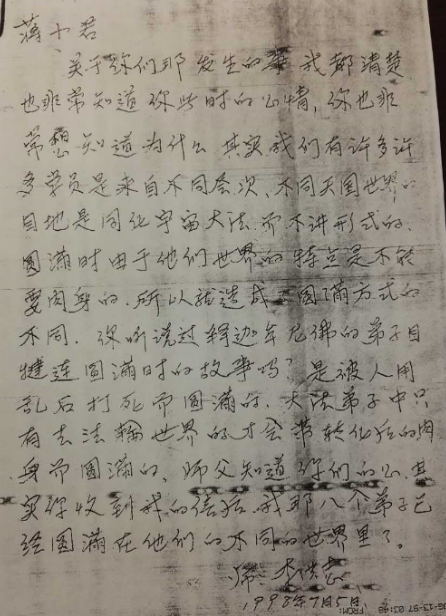 蒲小君
关于你们那发生的事我都清楚
也非常知道你此时的心情，你也非
常想知道为什么 其实我们有许多许
多学员是来自不同层次、不同天国世界的
目地是同化宇宙大法，而不讲形式的。
圆满时由于他们世界的特点是不能
要肉身的。所以就造成了圆满方式的
不同。你听说过释迦牟尼佛的弟子目
犍连圆满时的故事吗？是被人用
乱石打死而圆满的，大法弟子中只
有去法轮世界的才会带转化后的肉
身而圆满的，师父知道你们的心。其
实你收到我的信后，我那八个弟子已
经圆满在他们的不同的世界里了。
李洪志
1998年7月5日
FROM: